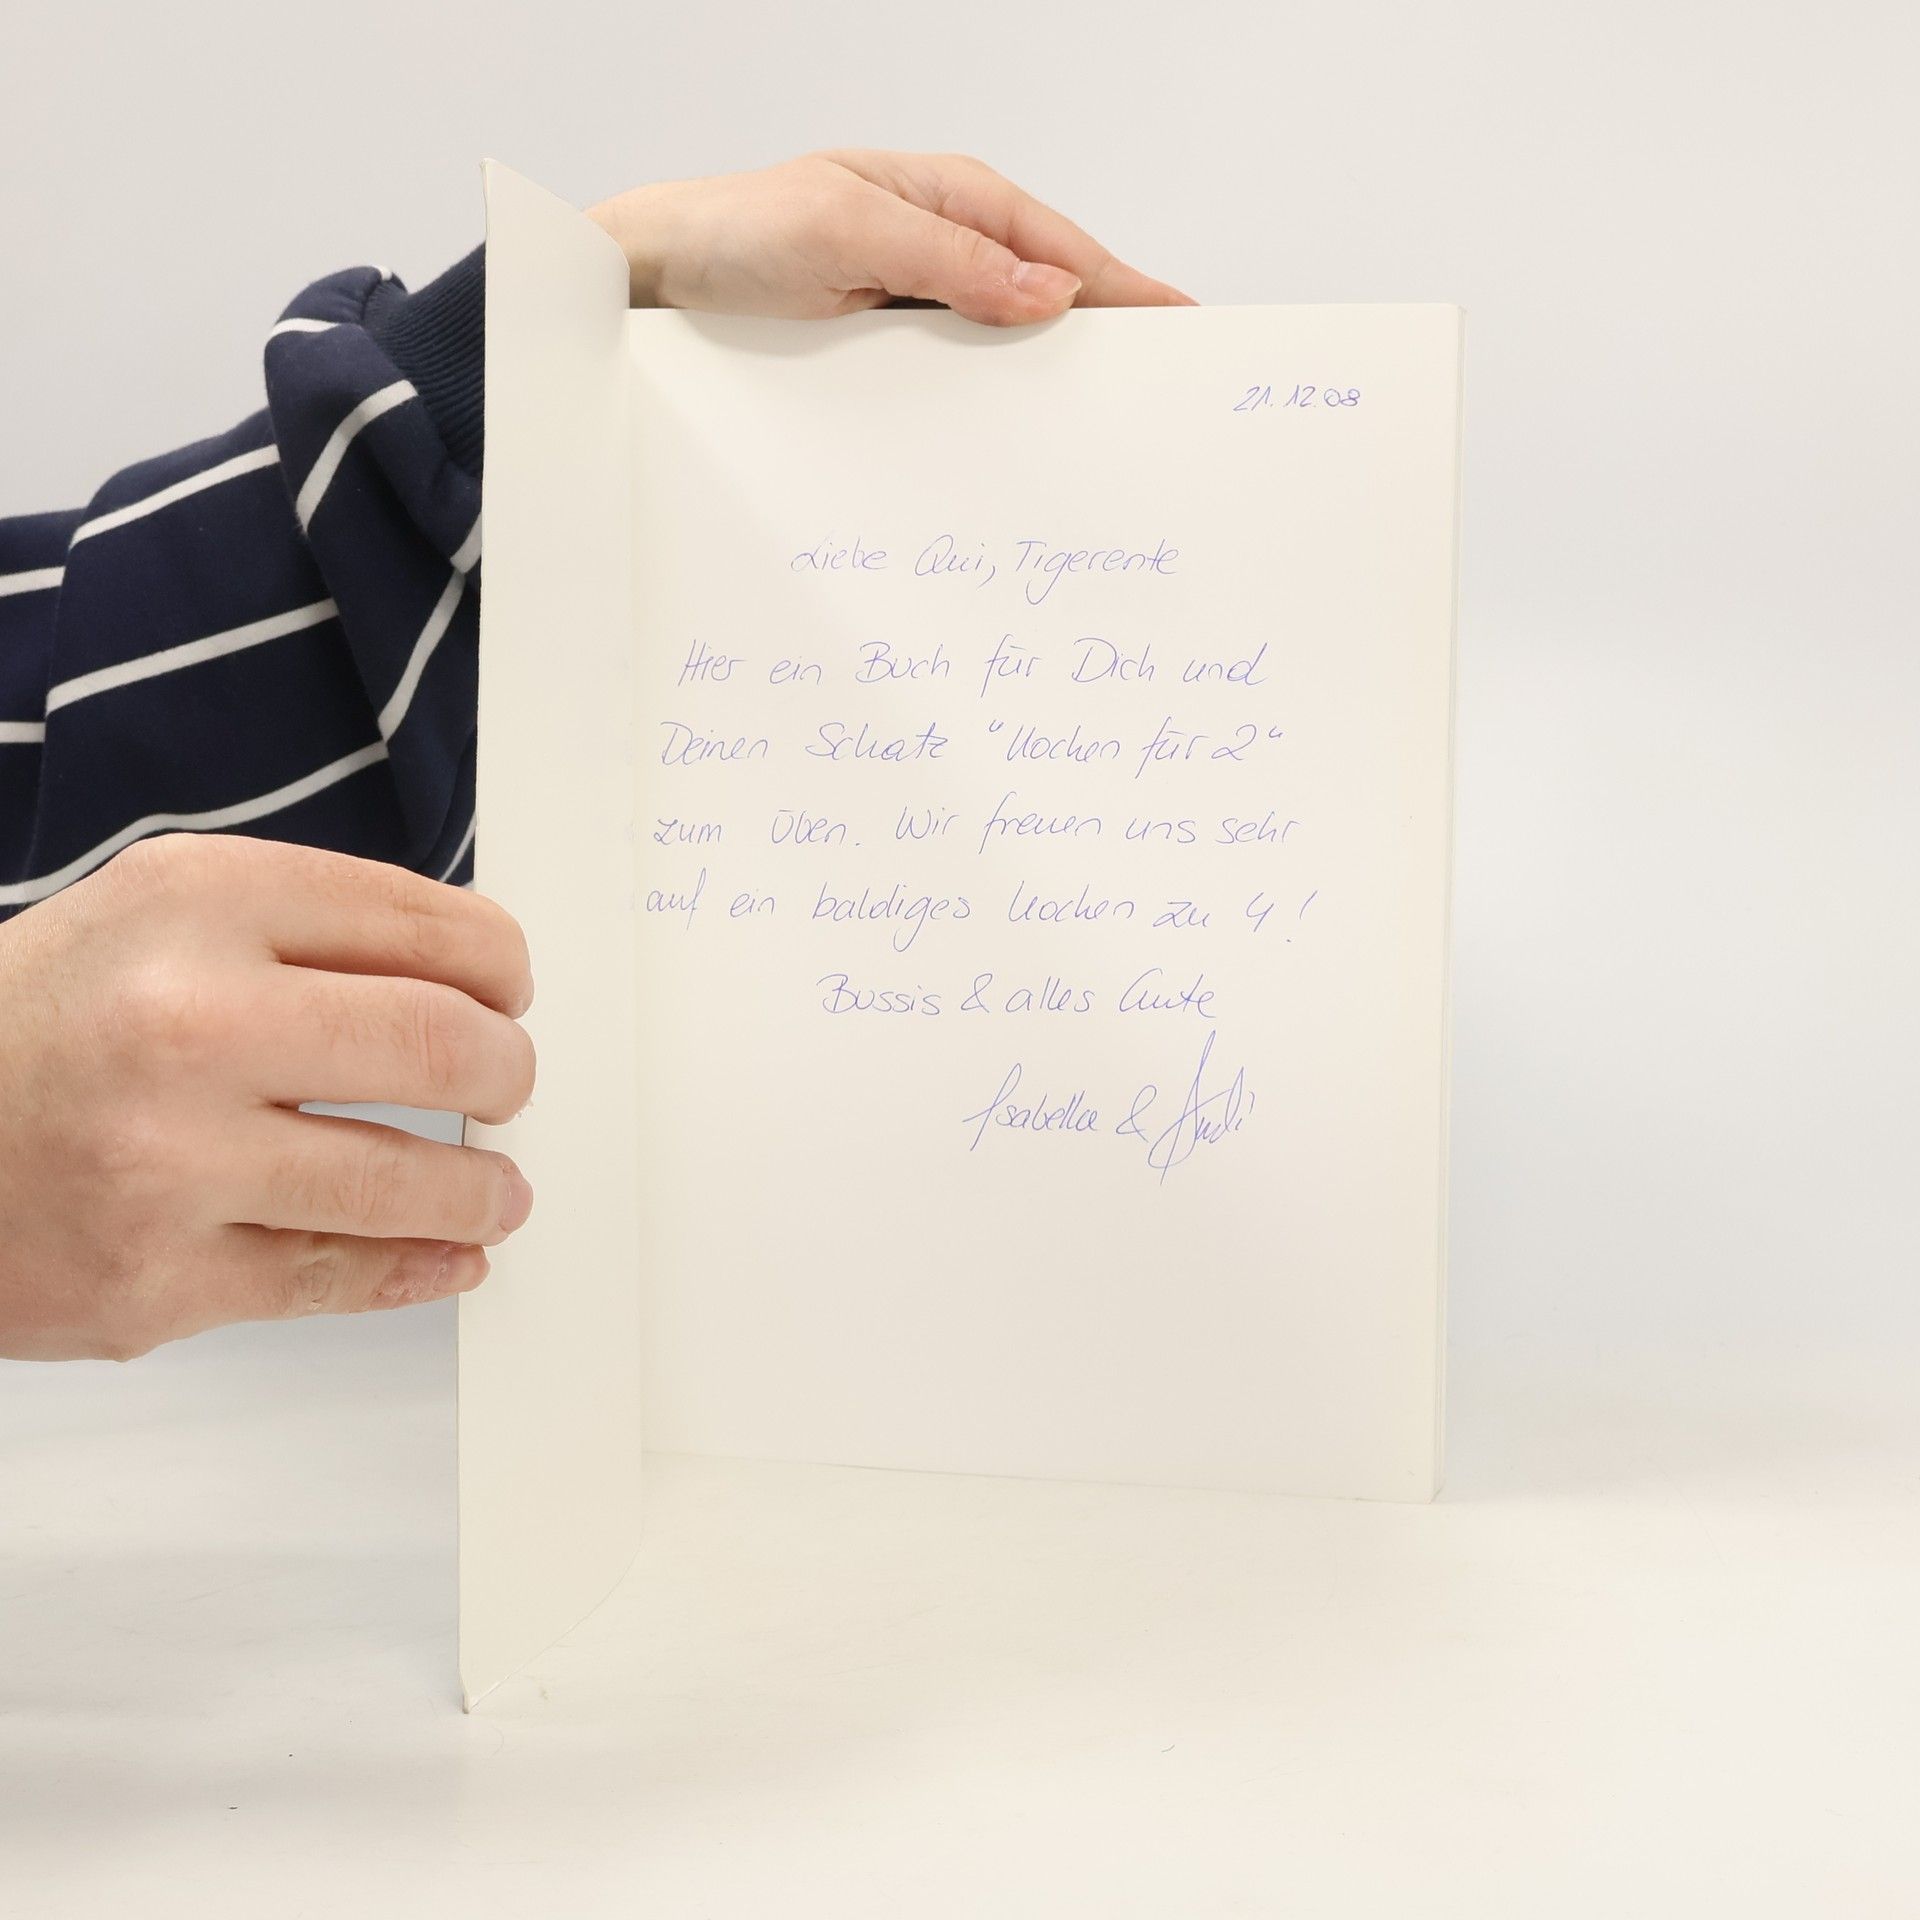 21.12.08
Liebe Qui, Tigerente
Hier ein Buch für Dich und
Deinen Schatz "Kochen für 2"
zum Üben. Wir freuen uns sehr
auf ein baldiges Kochen zu 4!
Bussis & alles Gute
Isabella & Andi